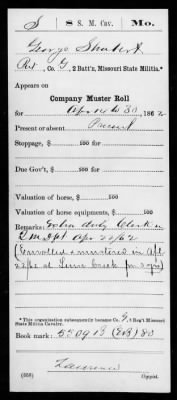 S | 8 S. M. Cav. | Mo.
George Shubert
Pvt, Co. G, 2 Batt'n, Missouri State Militia.*
Appears on
Company Muster Roll
for Apr 14 to 30, 1862
Present or absent Present
Stoppage, $ 100 for
Due Gov't, $ 100 for
Valuation of horse, $ 100
Valuation of horse equipments, $ 100
Remarks: extra duty Clerk in
Q M Dpt Apr 20/62
(Enrolled & mustered in Apl
at Creek for 3 yrs)
*This organization subsequently became Co. , 8 Reg't Missouri
State Militia Cavalry.
Book mark: 80
(358) Copyist.